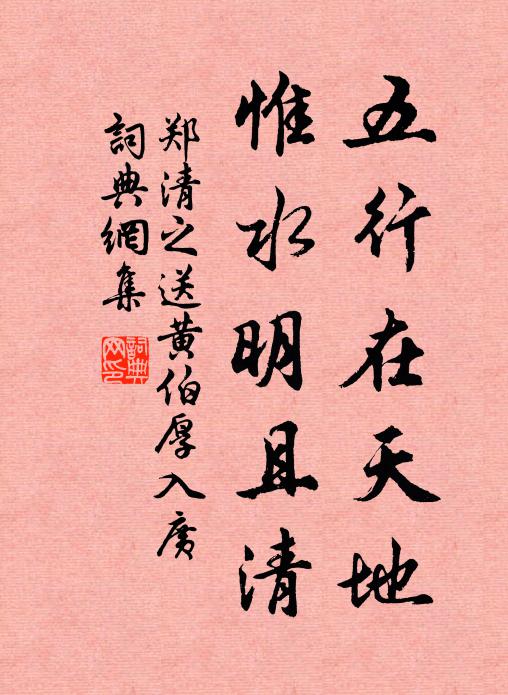 五行在天地
惟水明且清
郑清之送黄伯厚入廣
詞典網集
詞典網印